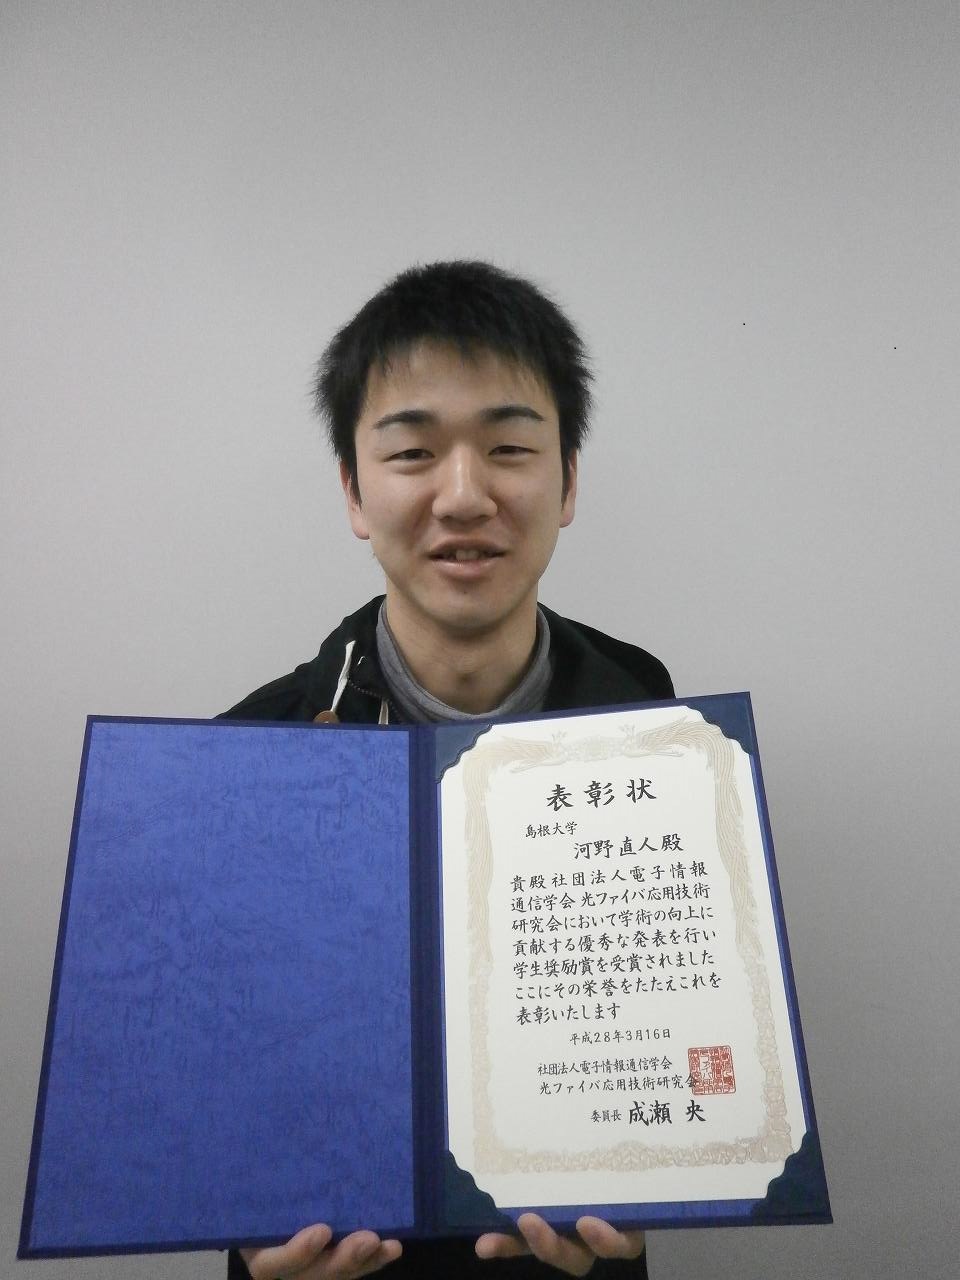 表彰状
島根大学
河野直人殿
貴殿社団法人電子情報
通信学会光ファイバ応用技術
研究会において学術の向上に
貢献する優秀な発表を行い
学生奨励賞を受賞されました
ここにその栄誉をたたえこれを
表彰いたします
平成28年3月16日
社団法人電子情報通信学会
光ファイバ応用技術研究会
委員長 成瀬 央